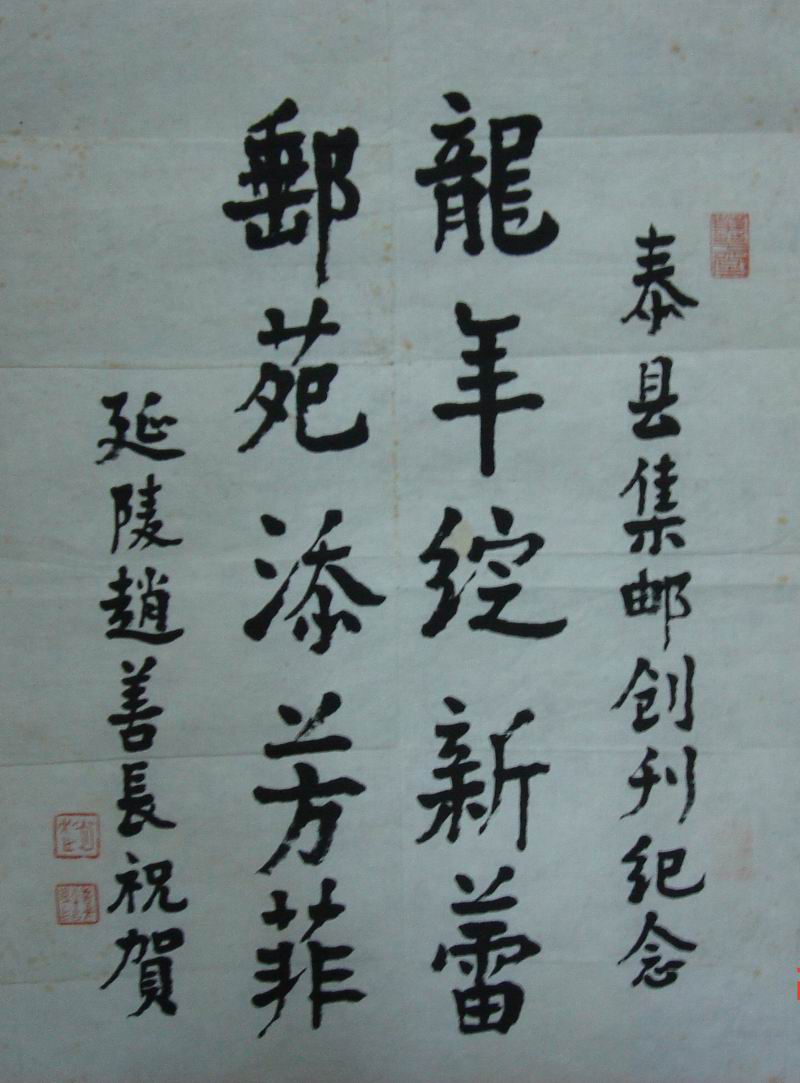 泰县集邮创刊纪念
龍年綻新蕾
郵苑添芳菲
延陵趙善長祝賀